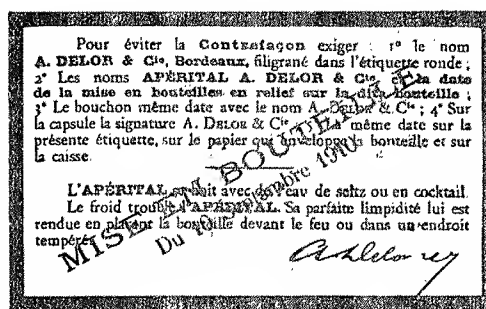 Pour éviter la Contrefaçon exiger : 1° le nom
A. DELOR & Cie, Bordeaux, filigrané dans l'étiquette ronde ;
2° Les noms APÉRITAL A. DELOR & Cie, et la date
de la mise en bouteilles en relief sur la dite bouteille ;
3° Le bouchon même date avec le nom A. DELOR & Cie ; 4° Sur
la capsule la signature A. DELOR & Cie, la même date sur la
présente étiquette, sur le papier qui enveloppe la bouteille et sur
la caisse.
L'APÉRITAL se boit avec de l'eau de seltz ou en cocktail.
Le froid trouble l'APÉRITAL. Sa parfaite limpidité lui est
rendue en plaçant la bouteille devant le feu ou dans un endroit
tempéré
MISE EN BOUTEILLE
Du 10 Septembre 1910